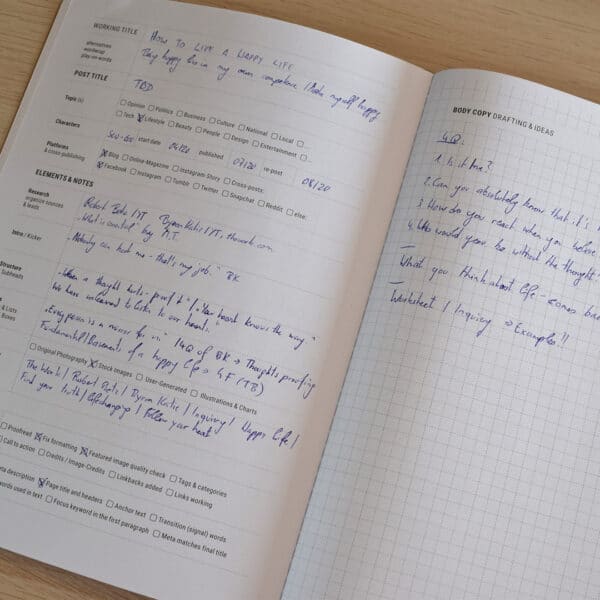 WORKING TITLE
alternatives
wordwrap
play-on-words
HOW TO LIVE A HAPPY LIFE
Being happy lies in my own competence / Make myself happy
POST TITLE
TBD
Topic (s)
Opinion Politics Business Culture National Local ...
Tech Lifestyle Beauty People Design Entertainment ...
Characters
start date 04/20 published 07/20 re-post 08/20
Platforms
& cross-publishing
Blog Online-Magazine Instagram-Story Cross-posts:
Facebook Instagram Tumblr Twitter Snapchat Reddit else:
ELEMENTS & NOTES
Research
organize sources
& leads
Robert Betz / YT Byron Katie / YT, thework.com
Intro / Kicker
"Nobody can hurt me - that's my job." BK
Structure
Subheads
"When a thought hurts - proof it" / "Your heart knows the way"
We have unlearned to listen to our heart."
& Lists
Boxes
"Every person is a mirror for us" 4Q of BK → Thoughts proofing
Fundamental/Basements of a happy life → 4F (TB)
Original Photography Stock Images User-Generated Illustrations & Charts
The Work / Robert Betz / Byron Katie / Inquiry / Happy Life /
Find your truth / Lifechanging / Follow your heart
Proofread Fix formatting Featured image quality check Tags & categories
Call to action Credits / Image-Credits Linkbacks added Links working
description Page title and headers Anchor text Transition (signal) words
words used in text Focus keyword in the first paragraph Meta matches final title
BODY COPY DRAFTING & IDEAS
4Q:
1. Is it true?
2. Can you absolutely know that it's
3. How do you react when you believe
4. Who would you be without the thought
What you think about life - comes
Worksheet / Inquiry → Examples!!